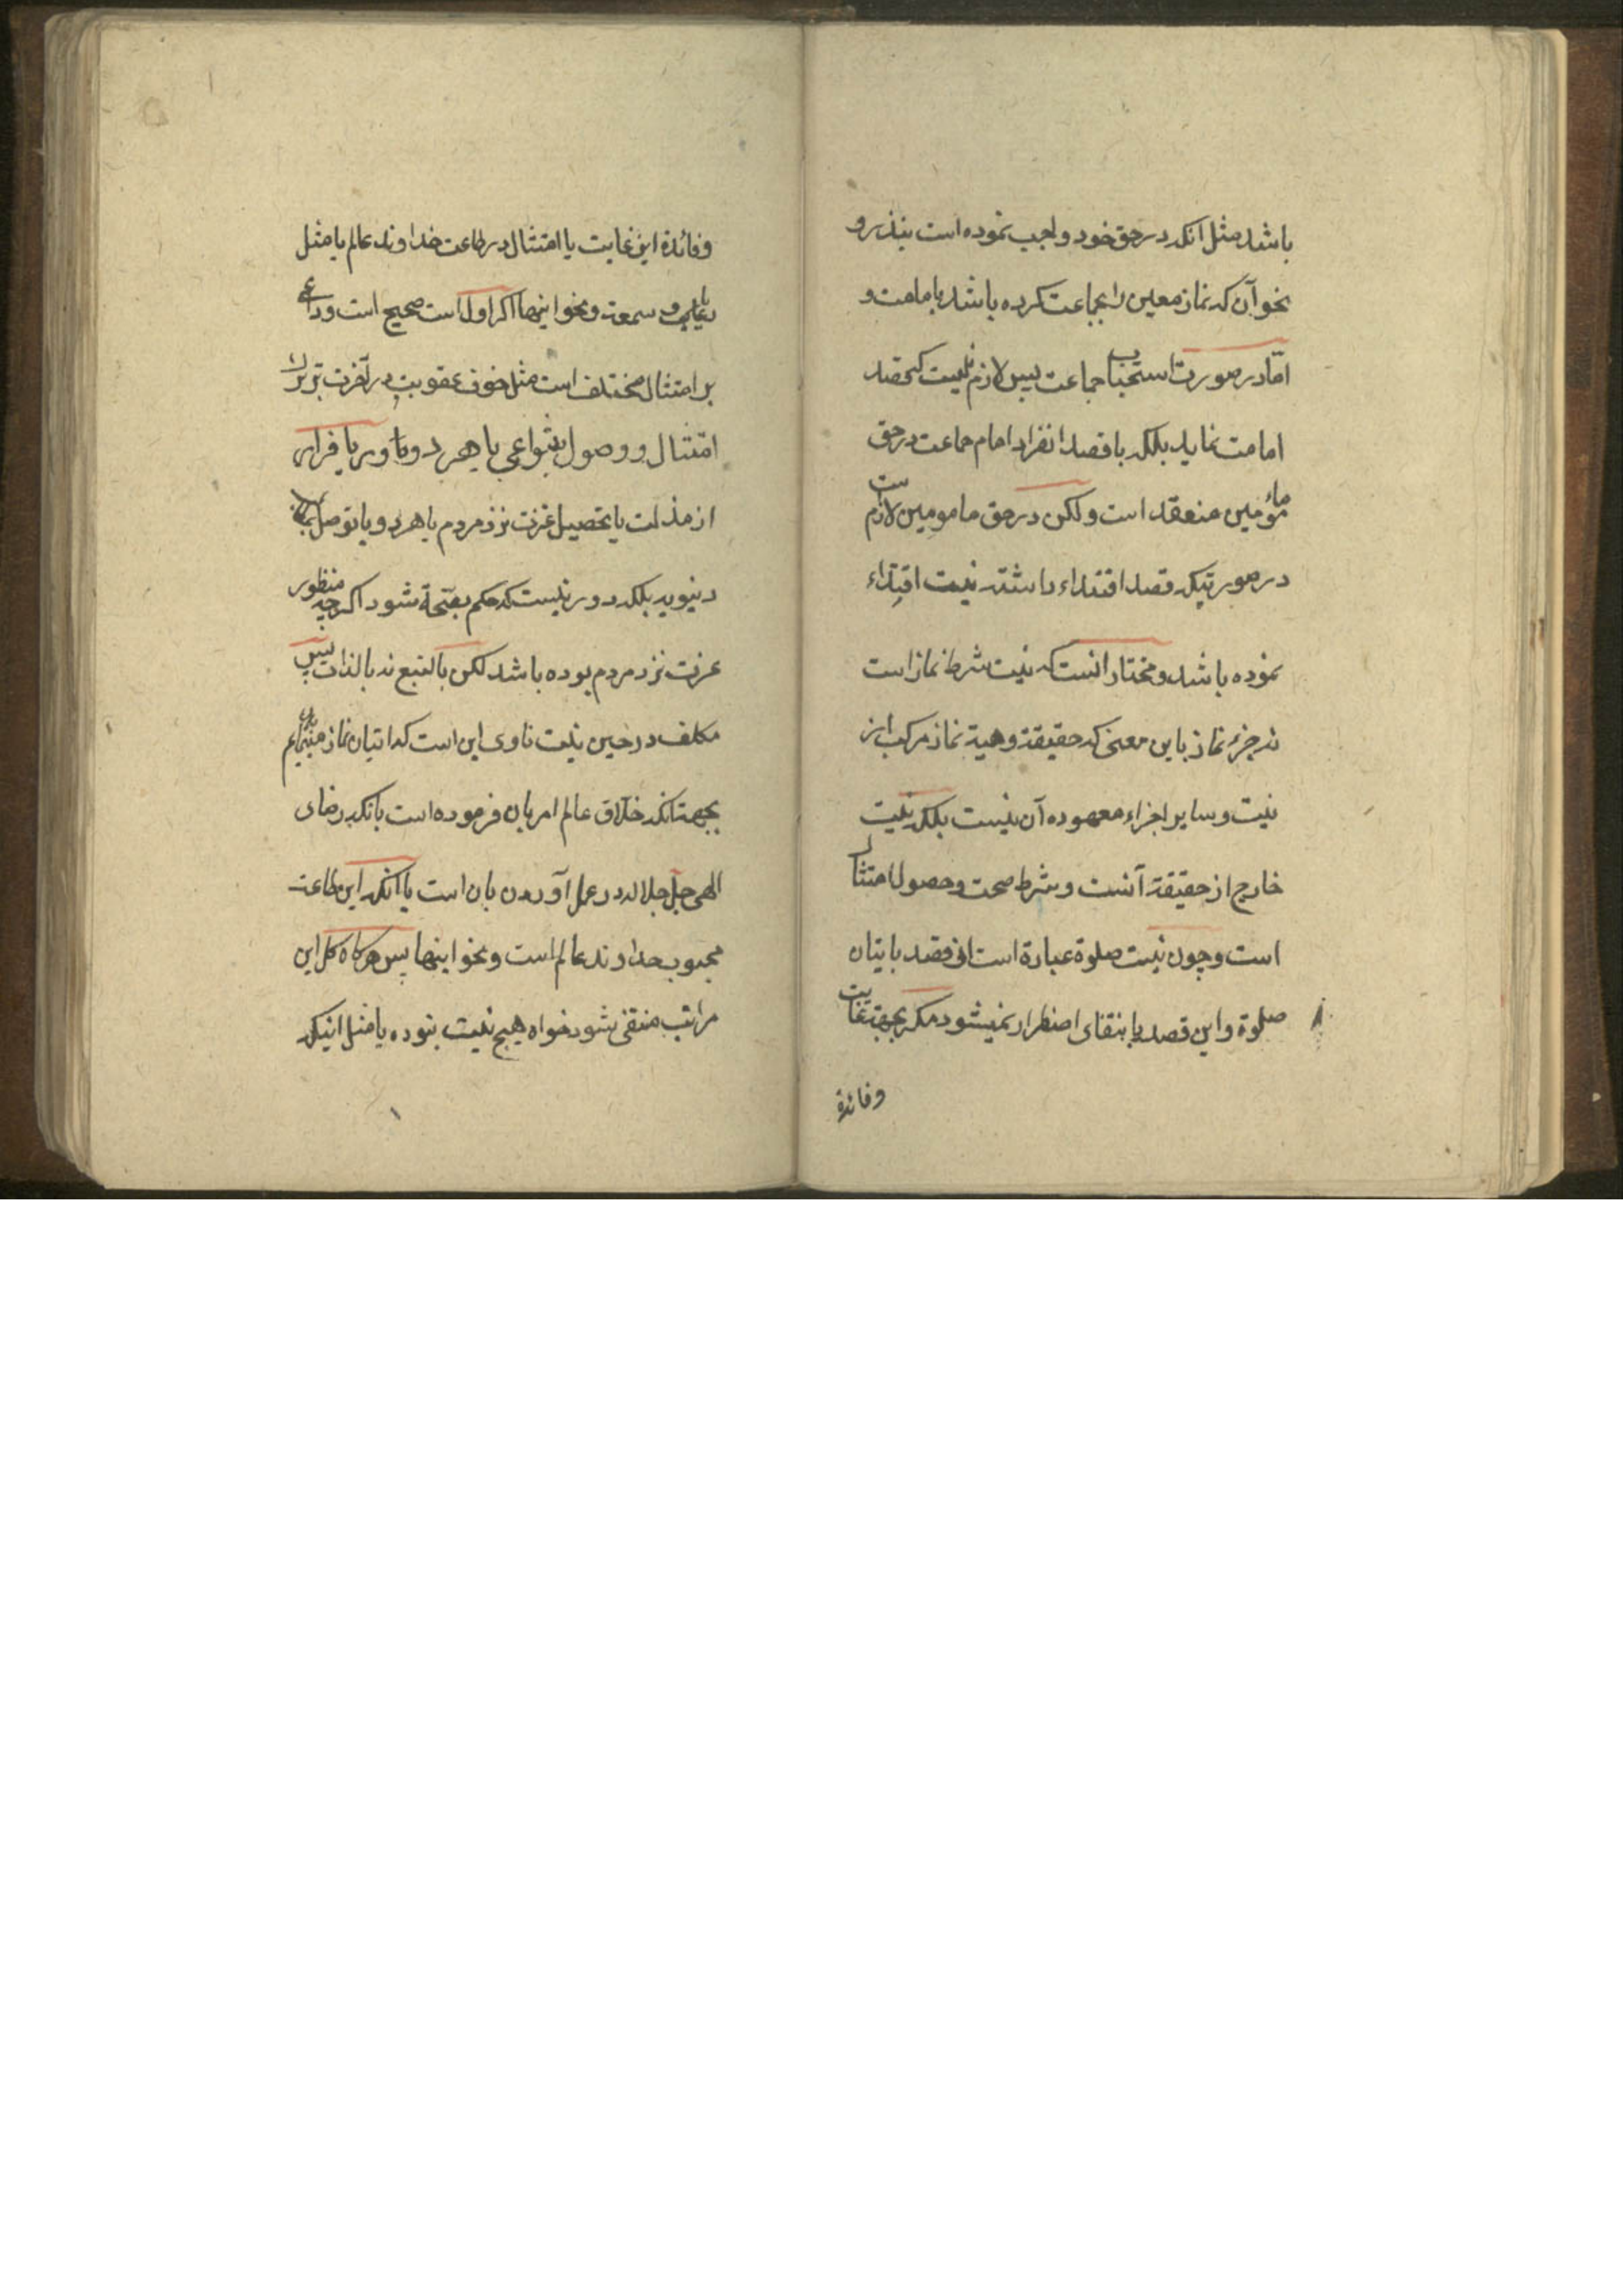 باشد مثل آنکه در حق خود واجب نموده است بنذر و
نحو آن که نماز معین را بجماعت کرده باشد بامامت و
امّا در صورت استحباب جماعت پس لازم نیست که قصد
امامت نماید بلکه با قصد انفراد امام جماعت در حق
مأمومین منعقد است ولکن در حق مامومین لازم است
در صورتیکه قصد اقتداء داشته نیت اقتداء
نموده باشد و مختار انست که نیت شرط نماز است
نه جزء نماز باین معنی که حقیقة وهیة نماز مرکب از
نیت و سایر اجزاء معهوده آن نیست بلکه نیت
خارج از حقیقة آنست و شرط صحت و حصول امتثال
است و چون نیت صلوة عبارة است از قصد باتیان
صلوة و این قصد با انتفای اضطرار نمیشود مکر بجهة غایت
وفائدة
وفائدة این غایت یا امتثال در طاعت خداوند عالم یا مثل
ریا و سمعة و نحو اینها اکر اول است صحیح است وداعی
بر امتثال مختلف است مثل خوف عقوبت در آخرت بر ترک
امتثال و وصول بثواب یا هر دو و یا فرار
از مذلت یا تحصیل عزت نزد مردم یا هر دو و یا توصل
دنیویه بلکه دور نیست که حکم بصحة شود اکرچه منظور
عزت نزد مردم بوده باشد لکن بالتبع نه بالذات پس
مکلف در حین نیت ناوی این است که اتیان نماز مینمایم
بجهة آنکه خلاق عالم امر بان فرموده است یا آنکه رضای
الهی جل جلاله در عمل آوردن بان است یا آنکه این طاعت
محبوب خداوند عالم است و نحو اینها پس هرکاه کل این
مراتب منتفی شود خواه هیچ نیت نبوده یا مثل اینکه